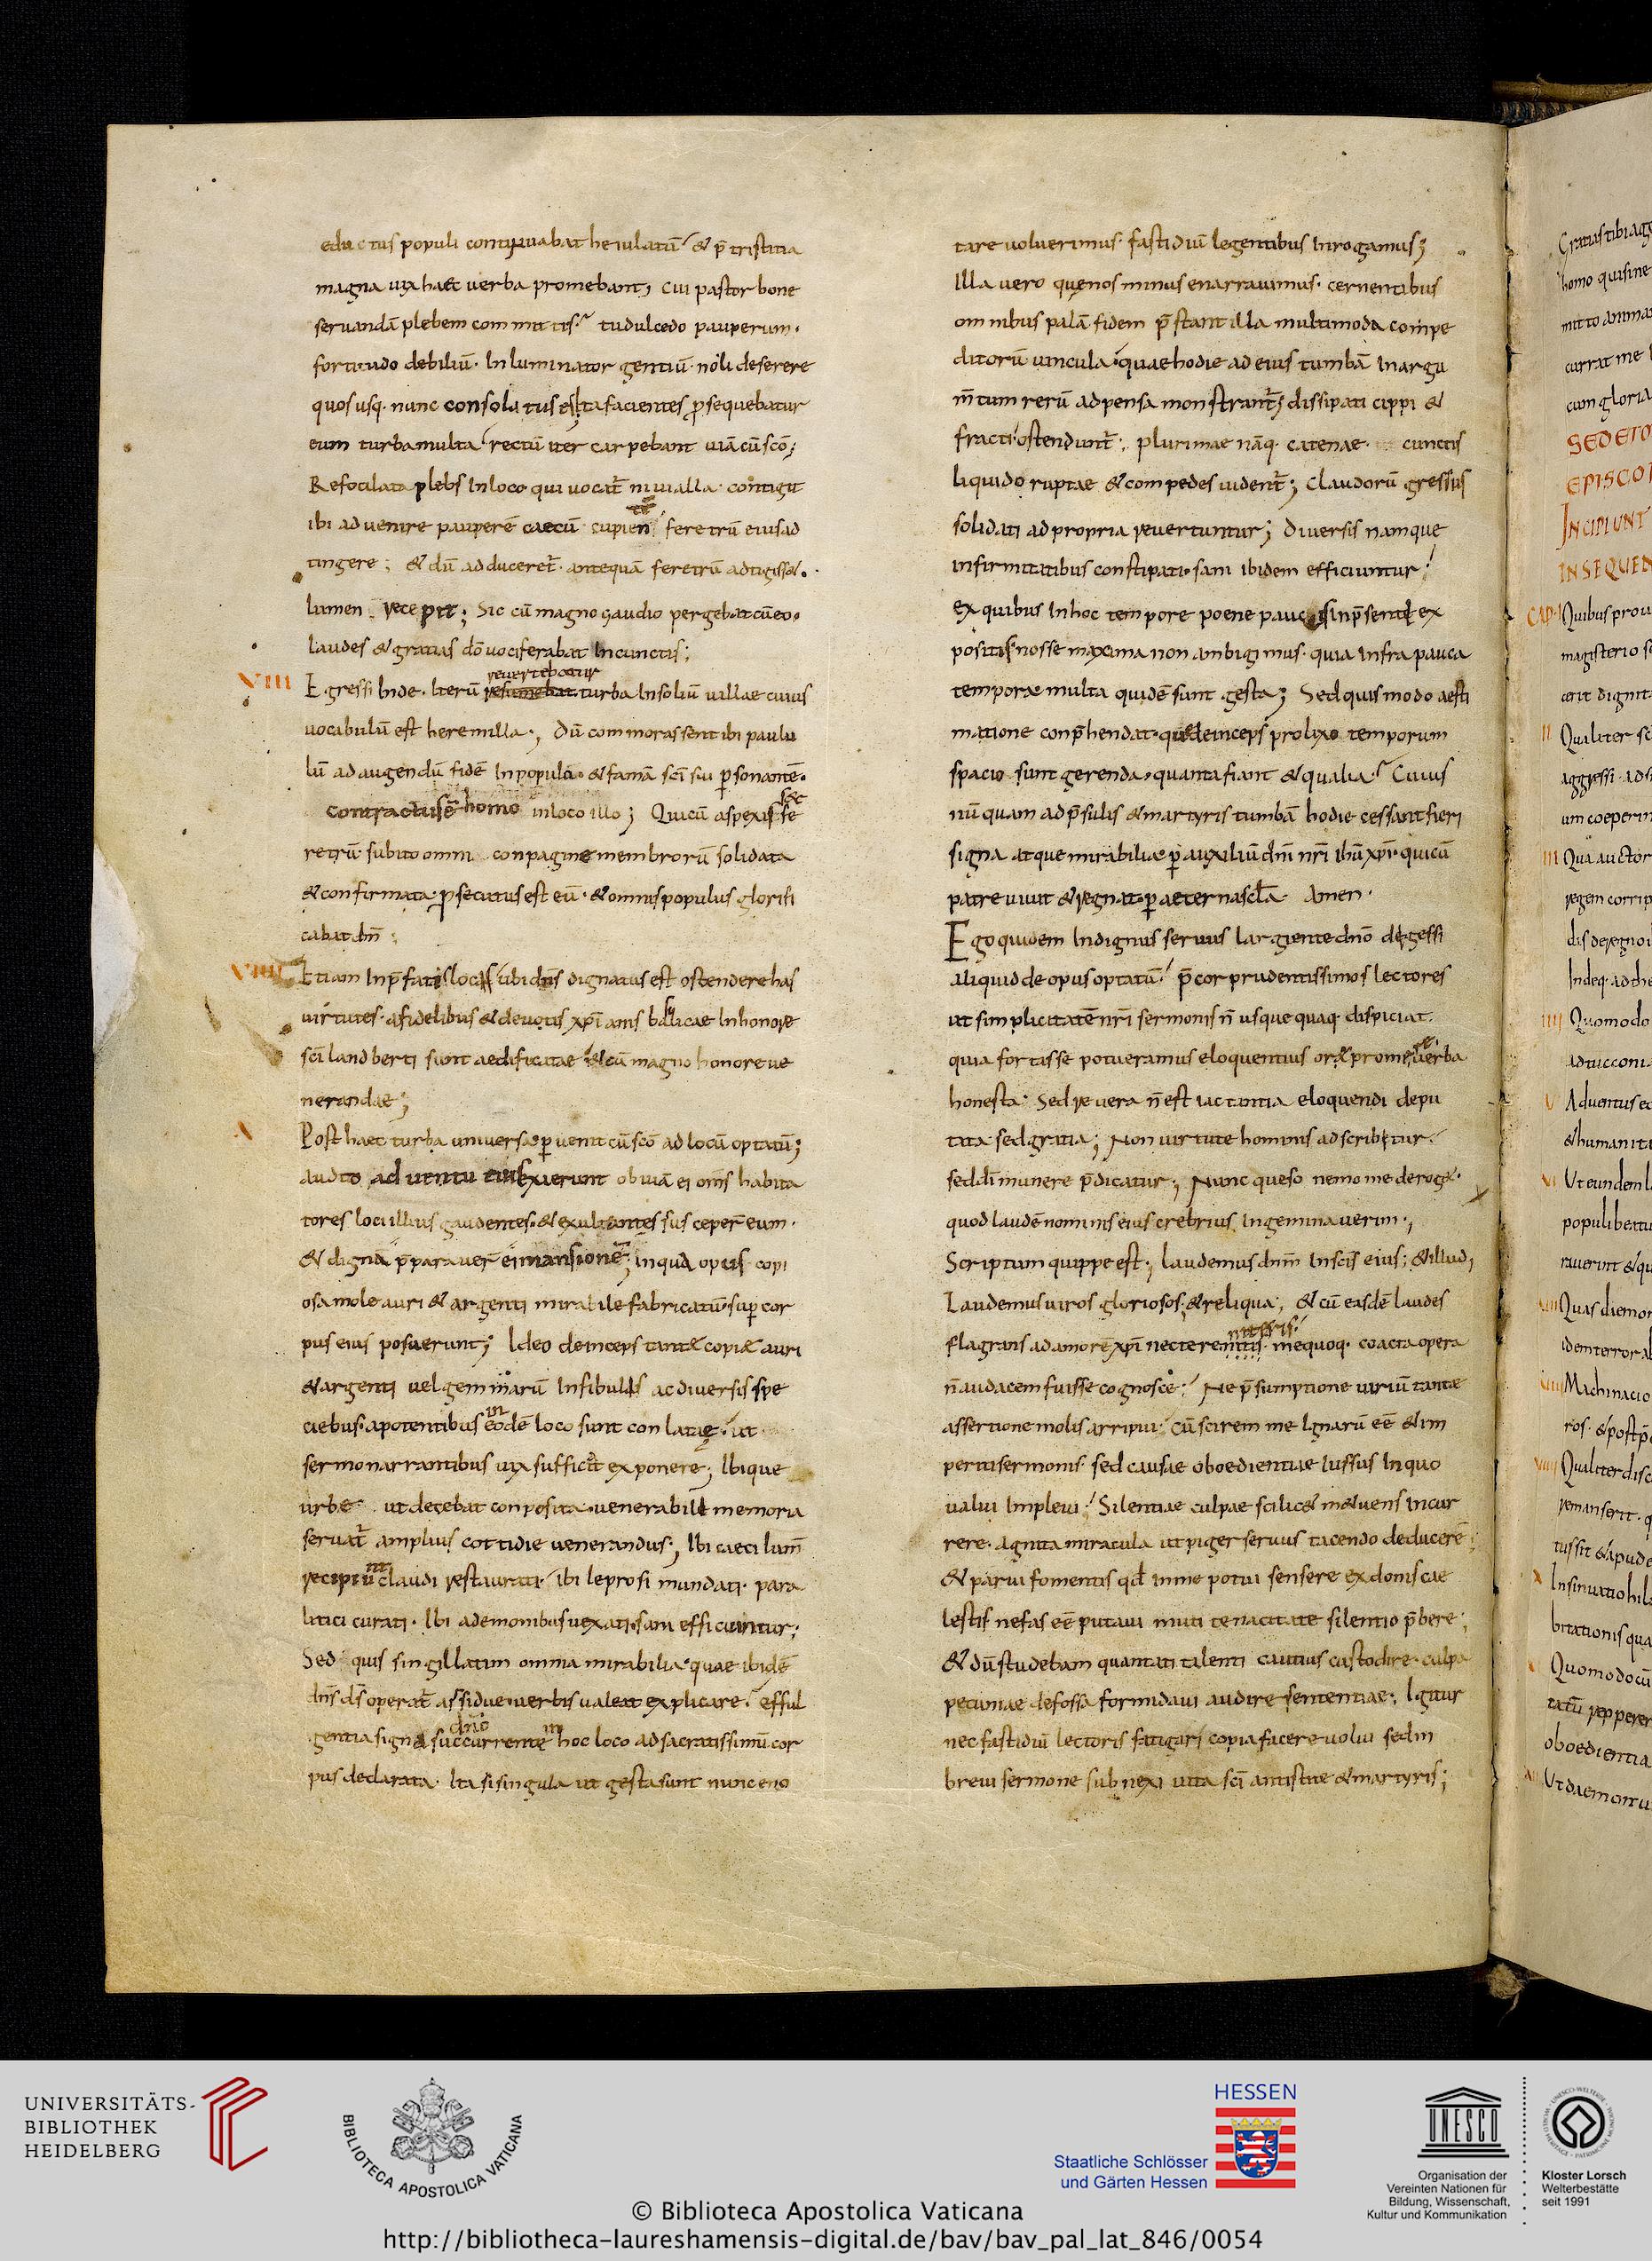 eductus populi continuabat heiulatū & p̄ tristitia
magna vix haec verba promebant; cui pastor bone
servandā plebem committis? tu dulcedo pauperum·
fortitudo debiliū· Inluminator gentiū· noli deserere
quos usq· nunc consolatus es Ita facientes p̱sequebatur
eum turba multa rectū iter carpebant viā cū scō;
Refocilata plebs In loco qui vocat̄ nivialla· contigit
ibi advenire pauperē caecū cupien feretrū eius ad
tingere; & dū adduceret̄· antequā feretrū adtigiss&·
lumen recepit; Sic cū magno gaudio pergebat cū eo·
laudes & gratias dō vociferabat In cunctis;
VIII
revertebatur
Egressi Inde· Iterū resumebat turba In soliū villae cuius
vocabulū est heremilla; Dū commorassent ibi paulu
lū ad augendū fidē In populo· & famā scī sui p̱sonantē·
contractus ē homo in loco illo; Qui cū aspexisse fe
retrū subito omni conpagine membrorū solidata
& confirmata· p̱secutus est eū· & omnis populus glorifi
cabat dn̄m;
VIIII
Etiam In p̄fatis locis ubi dn̄s dignatus est ostendere has
virtutes· a fidelibus & devotis xp̄ianis basilicae In honore
scī landberti sunt aedificatae & cū magno honore ve
nerandae;
X
Post haec turba universa p̱venit cū scō ad locū optatū;
audito adventu eius Exierunt obviā ei om̄s habita
tores loci illius gaudentes· & exultantes susceper̄ eum·
& dignā p̄paraver̄ ei mansionē; in qua opus copi
osa mole auri & argenti mirabile fabricatū· sup̱ cor
pus eius posuerunt; Ideo deinceps tantę copię auri
& argenti vel gemmarū In fibulis ac diversis spe
ciebus· a potentibus in eodē loco sunt conlatae· ut
sermo narrantibus vix sufficit exponere; Ibique
urbe ut decebat conposita· venerabili memoria
servat̄ amplius cottidie venerandus; Ibi caeci lum̄
recipiunt claudi restaurati· ibi leprosi mundati· para
litici curati· Ibi a demonibus vexati· sani efficiuntur;
Sed quis singillatim omnia mirabilia quae ibidē
dn̄s ds̄ operat̄ assidue· verbis valeat explicare? efful
gentia signa dn̄o succurrente in hoc loco ad sacratissimū cor
pus declarata· Ita si singula ut gesta sunt nunc eno
tare voluerimus· fastidiū legentibus Inrogamus;
Illa vero quę nos minus enarravimus· cernentibus
omnibus palā fidem p̄stant illa multimoda compe
ditorū vincula· quae hodie ad eius tumbā In argu
m̄tum rerū adpensa monstrant̄; dissipati cippi &
fracti ostendunt̄; plurimae nāq· catenae cunctis
liquido ruptae & compedes vident̄; Claudorū gressus
solidati ad propria revertuntur; Diversis namque
infirmitatibus constipati· sani ibidem efficiuntur!
ex quibus In hoc tempore poene paucos In p̄senti ex
positis nosse maxima non ambigimus· quia infra pauca
tempora multa quidē sunt gesta; Sed quis modo aesti
matione conp̄hendat· quę deinceps prolixo temporum
spacio sunt gerenda· quanta fiant & qualia? Cuius
nūquam ad p̄sulis & martyris tumbā hodie cessant fieri
signa atque mirabilia p̱ auxiliū dn̄i nr̄i ihū xp̄i· qui cū
patre vivit & regnat p̱ aeterna scl̄a· Amen·
Ego quidem Indignus servus largiente dn̄o degessi
aliquid de opus optatū! p̄cor prudentissimos lectores
ut simplicitatē nr̄i sermonis n̄ usque quaq· dispiciat·
quia fortisse potueramus eloquentius orę promere verba
honesta· Sed revera n̄ est iactantia eloquendi depu
tata sed gratia; Non virtute hominis adscribitur!
sed dī munere p̄dicatur; Nunc queso nemo me derog&·
quod laudē nominis eius crebrius Ingeminaverim;
Scriptum quippe est; laudemus dn̄m In scīs eius; & illud;
Laudemus viros gloriosos; & reliqua; & cū easdē laudes
flagrans ad amorē xp̄i necterem meque quoq· coacta opera
n̄ audacem fuisse cognosce! Ne p̄sumptione viriū tante
assertione molis arripui! Cū scirem me Ignarū eē & im
periti sermonis· sed causae oboedientiae Iussus In quo
valui Implevi! Silentiae culpae scilic& m&uens incur
rere· agnita miracula ut piger servus tacendo deducerē;
& parvi fomentis qd̄ in me potui sensere ex donis cae
lestis nefas eē putavi muti tenacitate silentio p̄bere;
& dū studebam quantati talenti cautius custodire culpa
pecuniae defossa formidavi audire sententiae; Igitur
nec fastidiū lectoris fatigari copia facere volui sed in
brevi sermone subnexi vita scī antistite & martyris;
Gratias tibi ag
homo qui sine
mitto anima
currat me
cum gloria
SED ETO
EPISCO
INCIPIUNT
IN SEQUEN
CAP· I Quibus prou
magisterio s
cerit dignit
II Qualiter sc
aggressi· ad s
um coeperin
III Qua auctor
regem corrip
dis de regno i
Indeq· ad he
IIII Quomodo
V Adventus e
& humanita
VI Ut eundem l
populi beatu
raverint & qu
VII Quas diemon
idem terror a
VIII Machinacio
ros· & postp̄
VIIII Qualiter disc
remanserit· q
iussit & apud e
X Insinuatio hil
bitationis qua
Quomodo cū
tatū reppere
oboedientia
Ut daemoniu
UNIVERSITÄTS-
BIBLIOTHEK
HEIDELBERG
BIBLIOTECA APOSTOLICA VATICANA
HESSEN
Staatliche Schlösser
und Gärten Hessen
UNESCO
Organisation der
Vereinten Nationen für
Bildung, Wissenschaft,
Kultur und Kommunikation
Kloster Lorsch
Welterbestätte
seit 1991
© Biblioteca Apostolica Vaticana
http://bibliotheca-laureshamensis-digital.de/bav/bav_pal_lat_846/0054